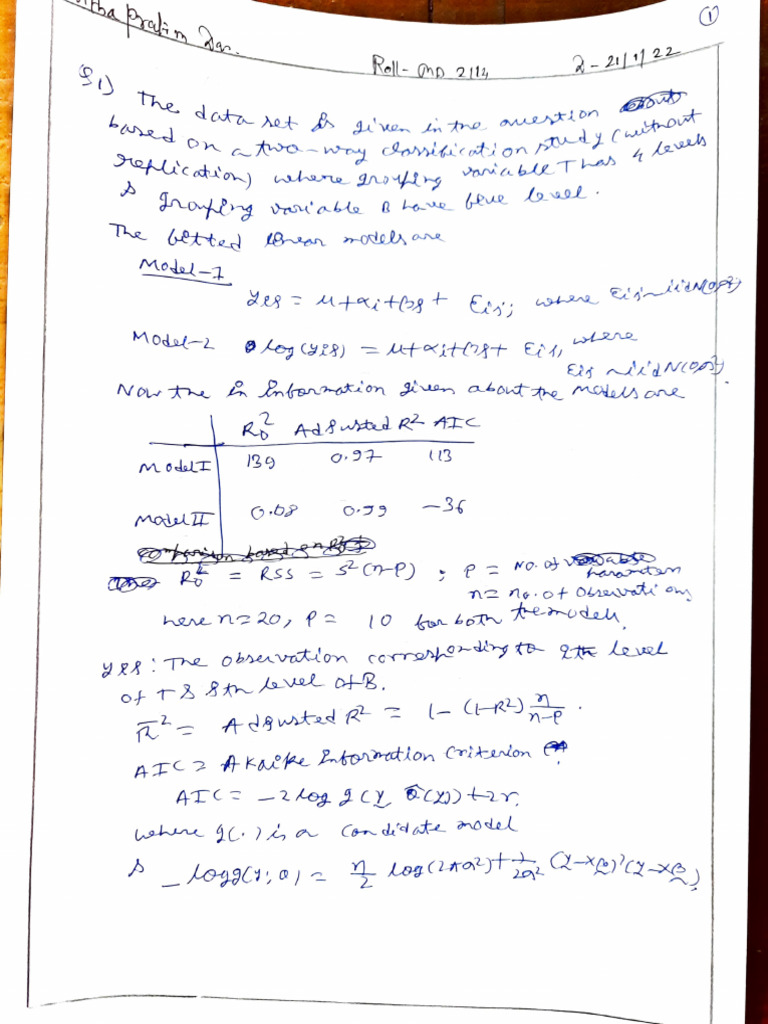 ①
Pratim Das.
Roll- MD 2114
2 - 21/1/22
Q1) The data set is given in the question
based on a two-way classification study (without
replication) where grouping variable T has 4 levels
& grouping variable B have five level.
The fitted linear models are
Model-1
yij = μ+αi+βj + εij; where εij~iidN(0,σ²)
Model-2 log(yij) = μ+αi+βj+ εij, where
εij ~iid N(0,σ²).
Now the in information given about the models are
R₀² Adjusted R² AIC
Model I 139 0.97 113
Model II 0.08 0.99 -36
comparison based on R²
R₀² = RSS = S²(n-p) ; p = No. of parameters
n = no. of observations
here n=20, p = 10 for both the models.
yij : The observation corresponding to ith level
of T & jth level of B.
R̄² = Adjusted R² = 1- (1-R²) n/n-p .
AIC = Akaike Information Criterion
AIC = -2 log g(y, θ̂(y)) +2r.
where g(.) is a candidate model
& -log g(y; θ) = n/2 log(2πσ²)+ 1/2σ² (y-xβ)'(y-xβ),